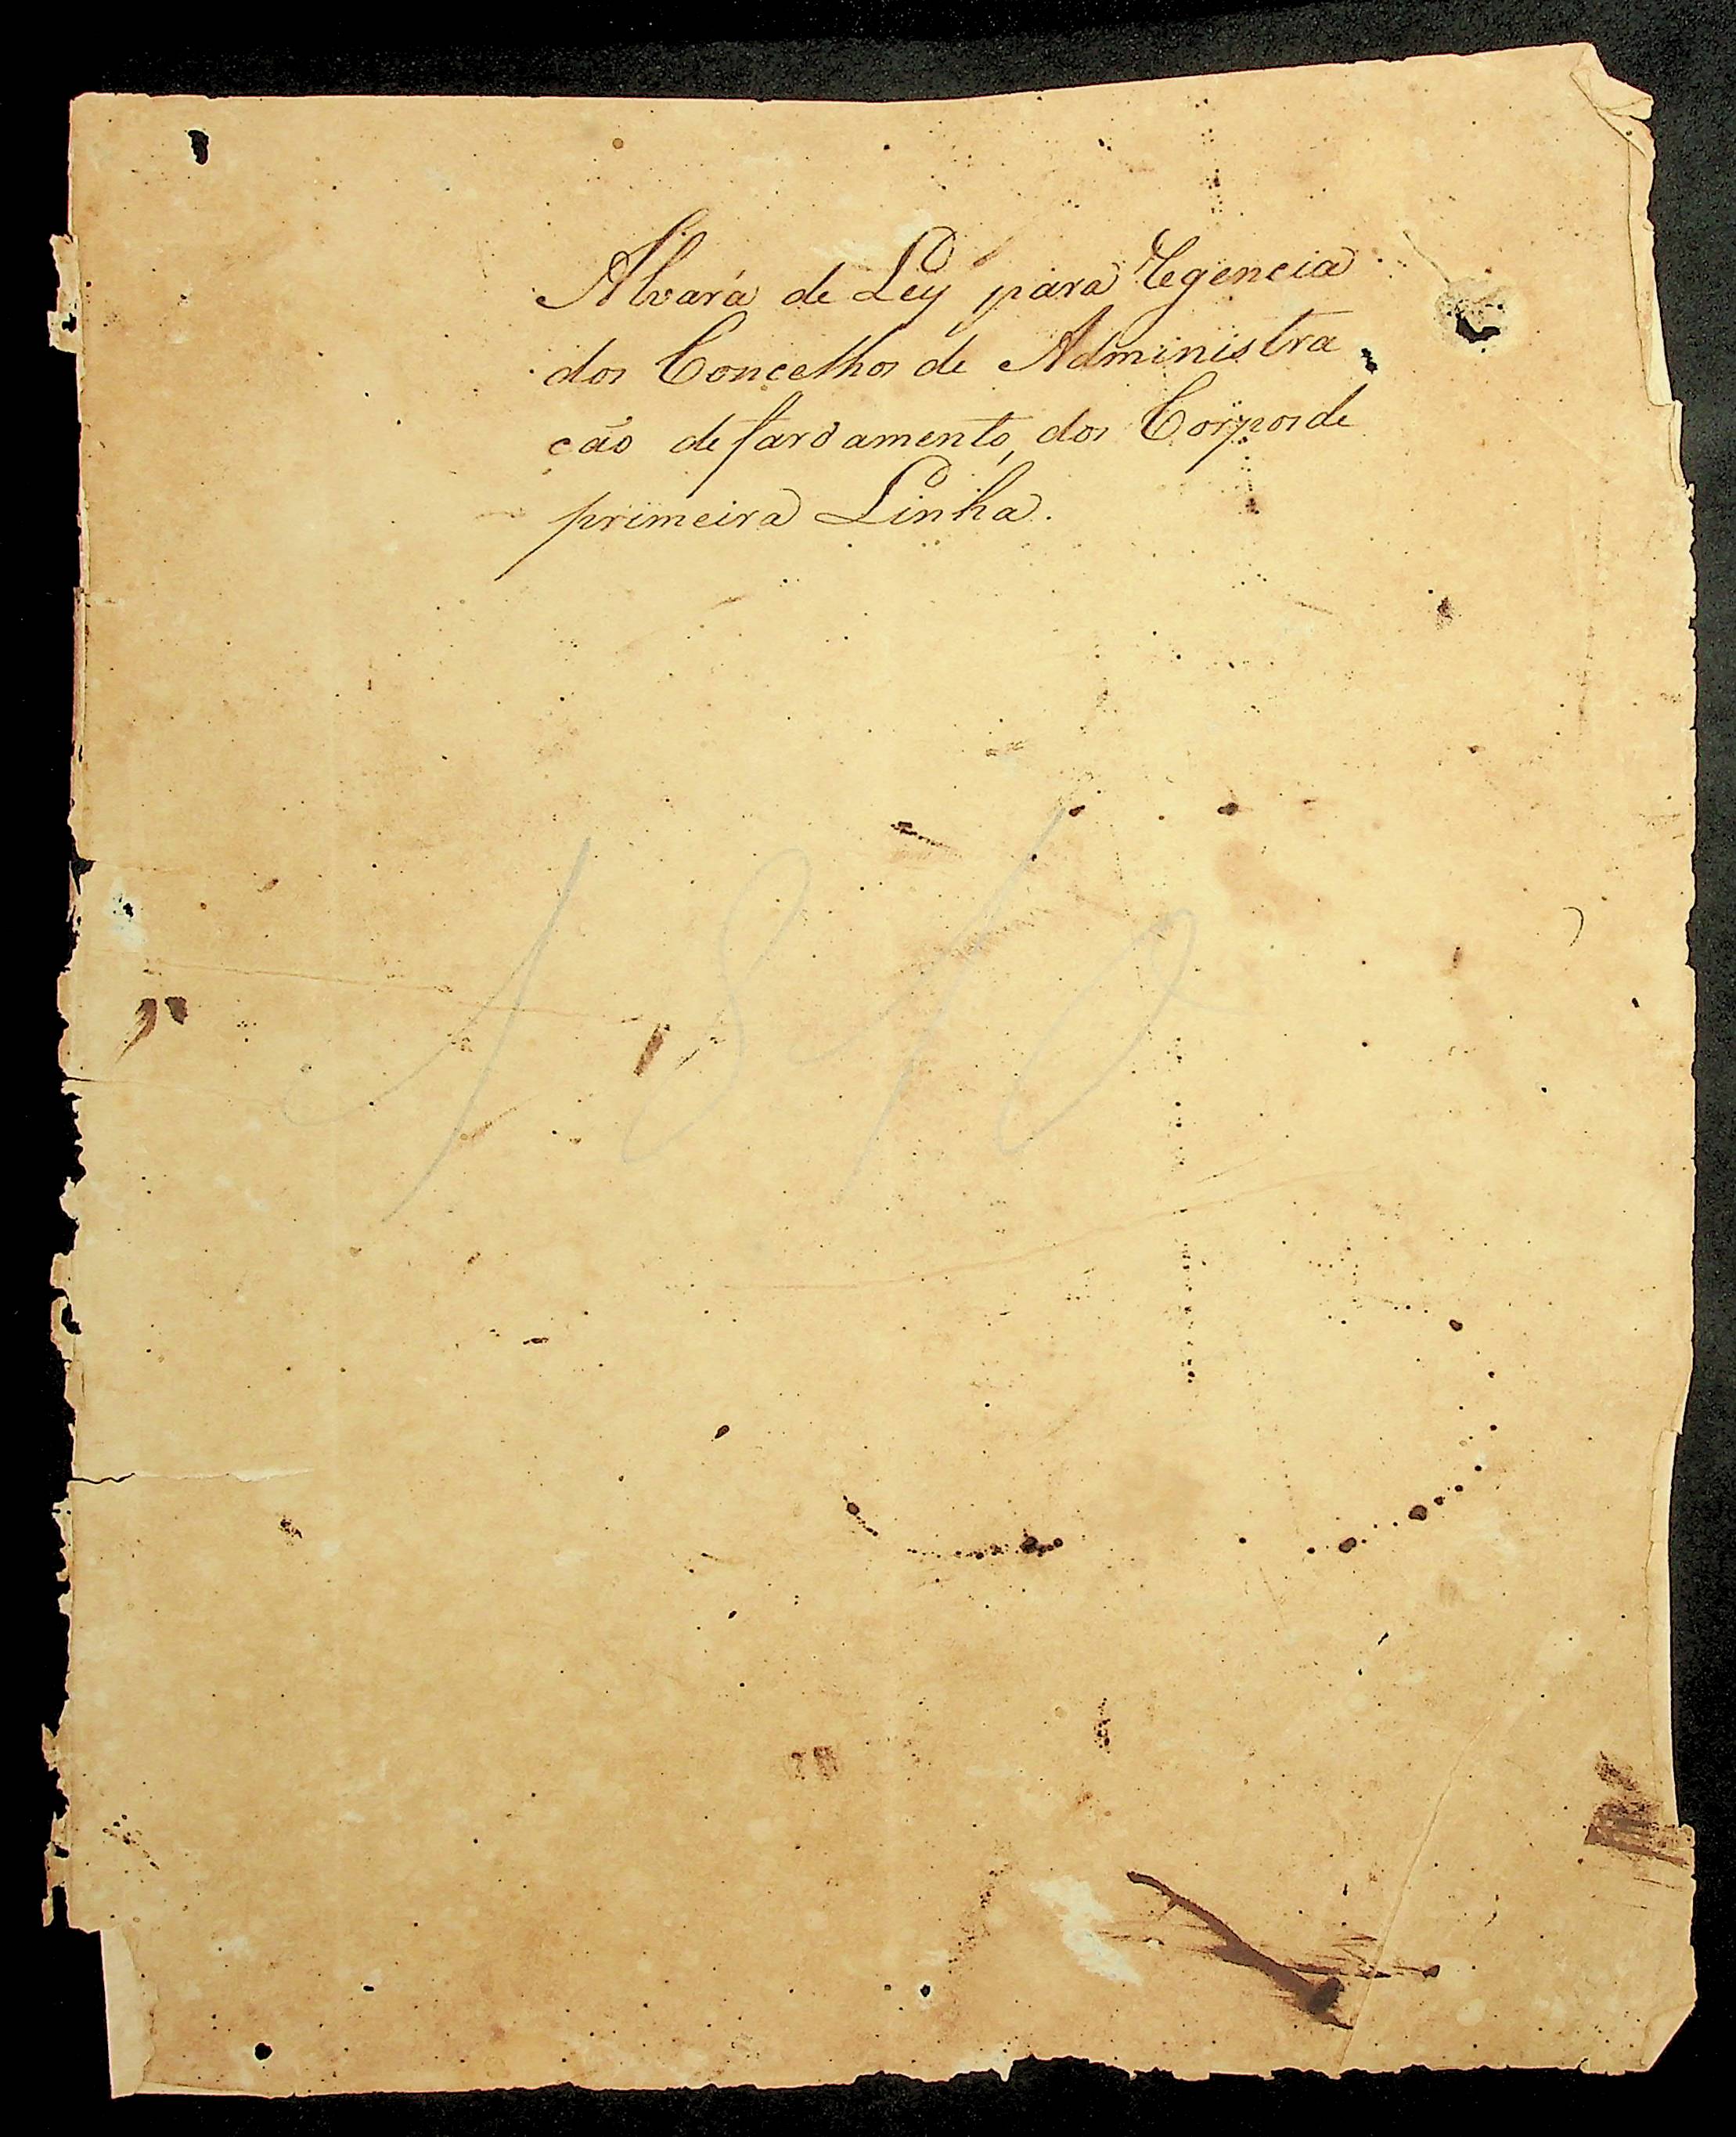 Alvará de Ley para Regencia
dos Concelhos de Administra
cão de fardamento, dos Corpos de
primeira Linha.